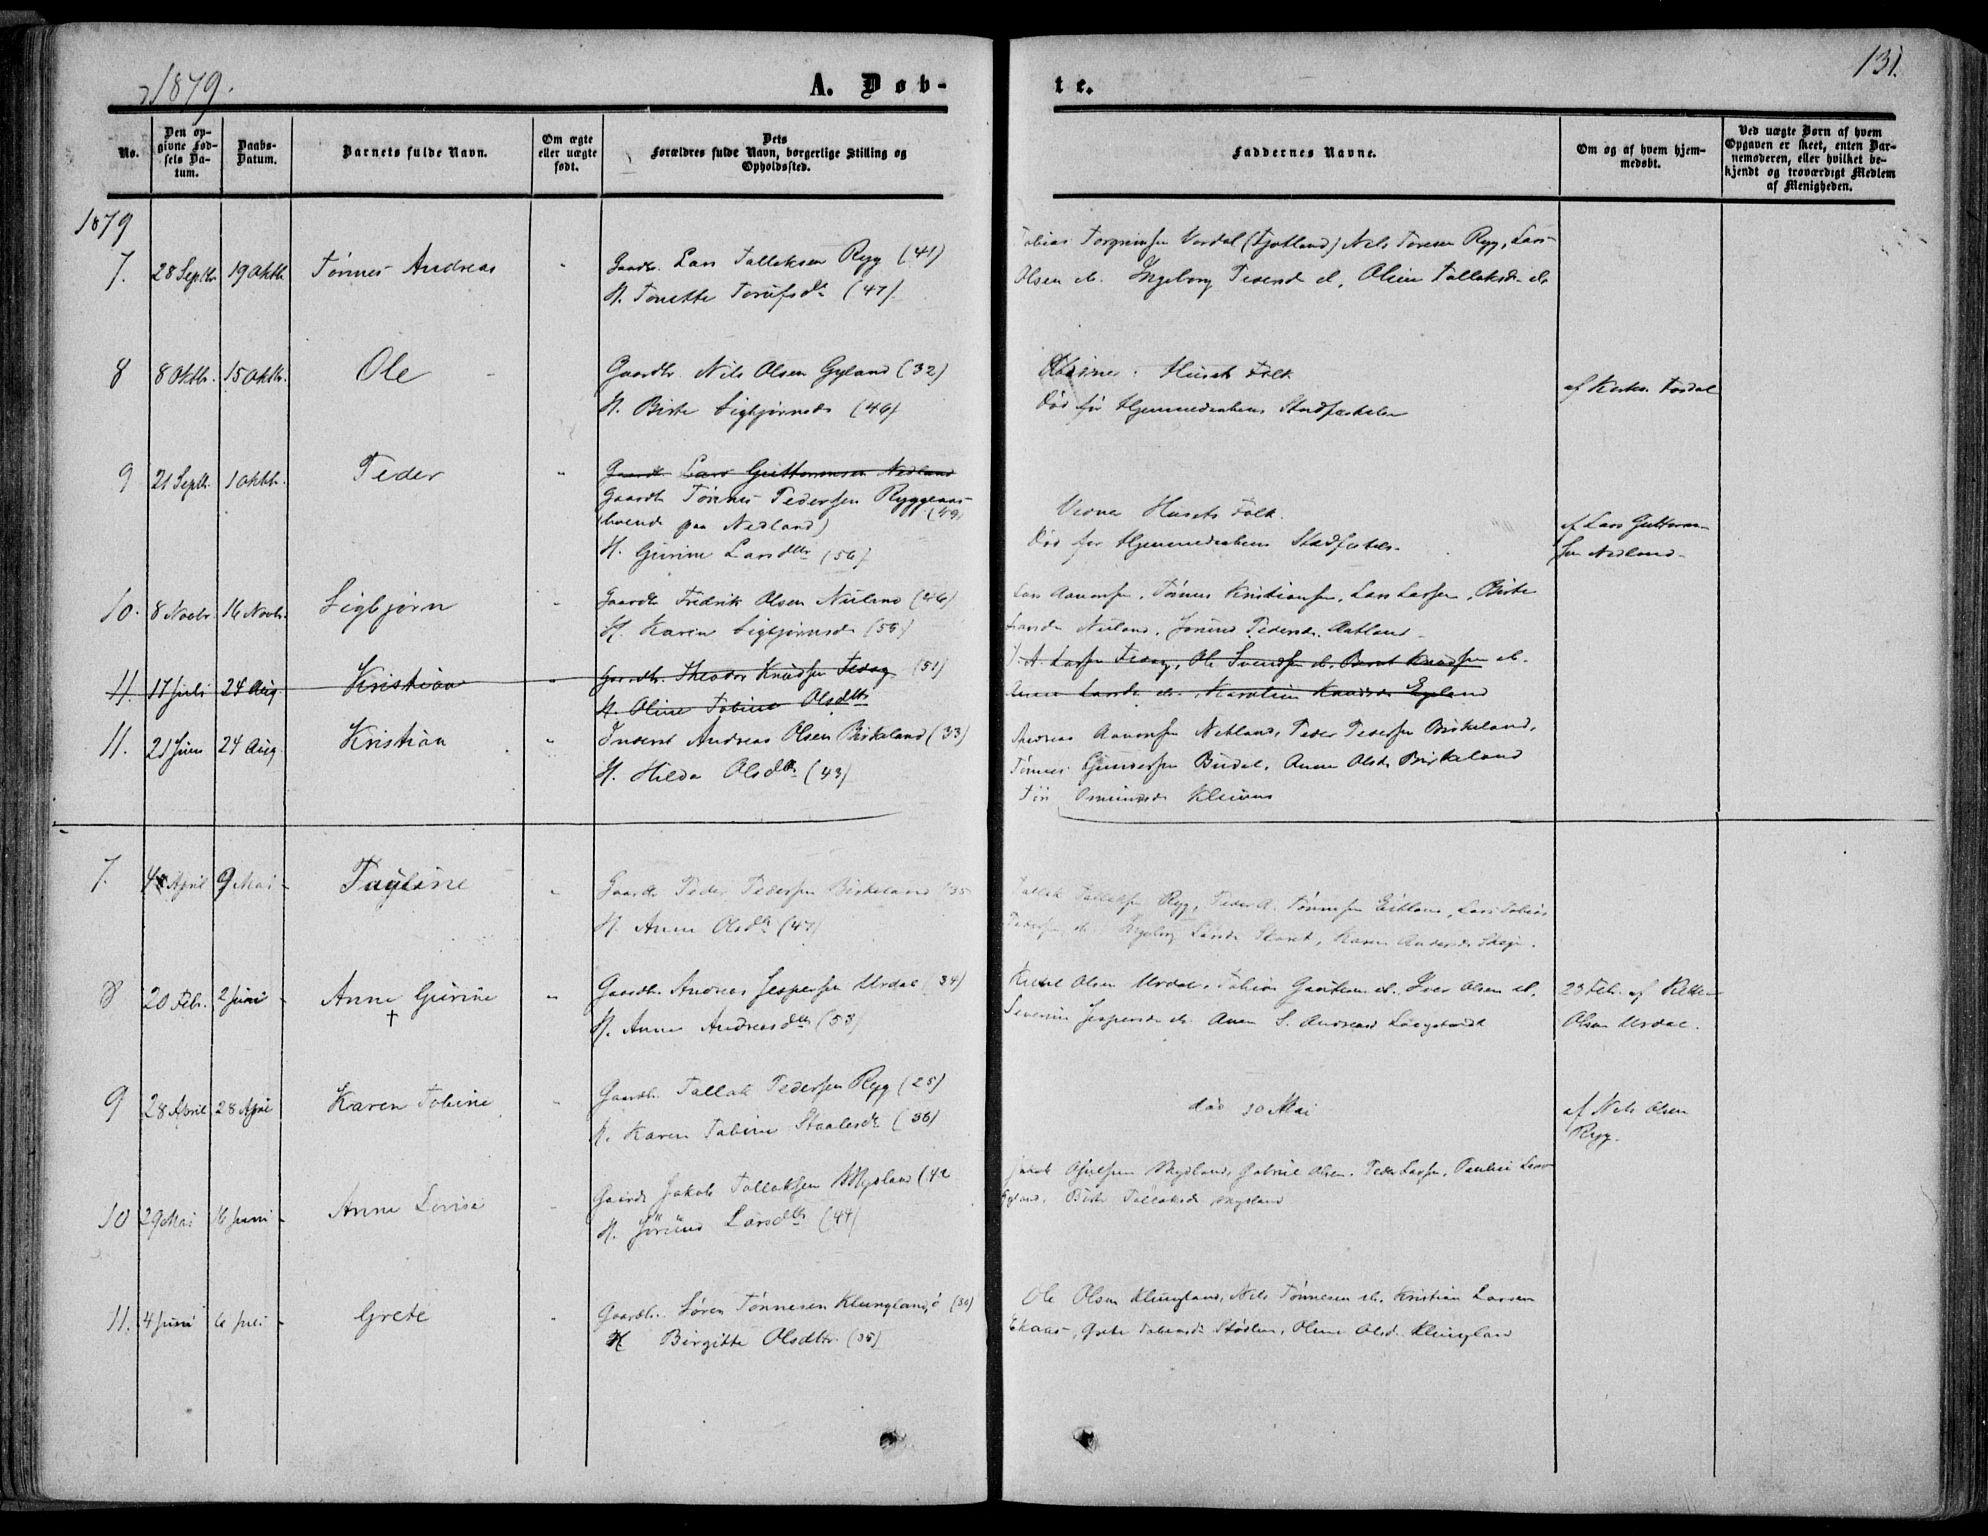 1879.
A. Døb-
te.
131.
No.
Den op-
givne Fød-
sels Da-
tum.
Daabs-
Datum.
Barnets fulde Navn.
Om ægte
eller uægte
født.
Dets
Forældres fulde Navn, borgerlige Stilling og
Opholdssted.
Faddernes Navne.
Om og af hvem hjem-
medøbt.
Ved uægte Børn af hvem
Opgaven er skeet, enten Bar-
nemoderen, eller hvilket be-
kjendt og troværdigt Medlem
af Menigheden.
1879
7. 28 Septbr. 19 Oktbr. Tønnes Andreas " Gaardbr. Lars Tallaksen Ryg (41)
H. Tonette (47)
Tobias Torgrimsen (Fjotland) Nils Ryg, Lars
Olsen d. Ingeborg d. Oline Tallaksd. d.
8 8 Oktbr. 15 Oktbr. Ole - Gaardbr. Nils Olsen Gyland (32)
H. Birte Sigbjørnsd. (46)
Husets Folk
Død før Hjemmedaabens Stadfæstelse
af
9 21 Septb. 1 Oktbr. Peder " Gaardb. Lars Guttormsen Nedland
Gaardb. Tønnes Pedersen Ryggeaas
(49)
(boende paa Nedland)
H. Gurine Larsdtr (56)
Husets Folk.
Død før Hjemmedaabens Stadfæstels.
af Lars Guttorm-
sen Nedland.
10. 8 Novbr. 16 Novbr. Sigbjørn " Gaardb. Fredrik Olsen Nuland (46)
H. Karen Sigbjørnsd. (55)
Lars Aanonsen, Tønnes Kristiansen, Lars Larsen, Birte
Larsd. Nuland, Jorund Pedersd. Aatland
11. 17 Juli 24 Aug. Kristian " Gaardbr. Theodor Knudsen Fedog (51)
H. Oline Tobine Olsdtr
Larsen Fedog, Ole Svendsen d. Bernt Knudsen d.
Anne Larsd. d. Karoline Knudsd. Egeland
11. 21 Juni 24 Aug. Kristian " Inderst Andreas Olsen Birkeland (33)
H. Hilda Olsdtr. (43)
Andreas Aanonsen Netland, Peder Pedersen Birkeland,
Tønnes Gundersen Budal, Anne Olsd. Birkeland
Osmundsd.
7. 4 April 9 Mai - " Gaardb. Peder Pedersen Birkeland (35
H. Anne Olsdtr (47)
Tallak Tallaksen Ryg, Peder A. Tønnesen Lars Tobias
Pedersen d. Ingeborg Larsd. Karen Andersd.
8 20 Feb. 2 Juni - Anne Gurine " Gaardb. Andreas Jespersen Urdal (34)
†
H. Anne Andreasdtr (53)
Olsen Urdal, Tobias d. Iver Olsen d.
Severine Jespersd. d. Anne S. Andreasd.
23 Feb. af
Olsen Urdal.
9 28 April 28 April Karen Tobine Gaardb. Tallak Pedersen Ryg (25)
H. Karen Tobine Staalesd. (36)
død 10 Mai
af Nils Olsen
Ryg.
10 29 Mai 16 Juni - Anne Lovise Gaardb. Jakob Tallaksen Mysland (42
H. Jørund Larsdtr (44)
Jakob Mysland, Gabriel Olsen, Peder Larsen, Pauline
Gyland, Birte Tallaksd. Mysland
11. 4 Juni 6 Juli - Grete Gaardb. Søren Tønnesen Klungland (36)
H Birgitte Olsdtr. (35)
Ole Olsen Klungland, Nils Tønnesen d. Kristian Larsen
Ekaas, Grete Olsd. Klungland